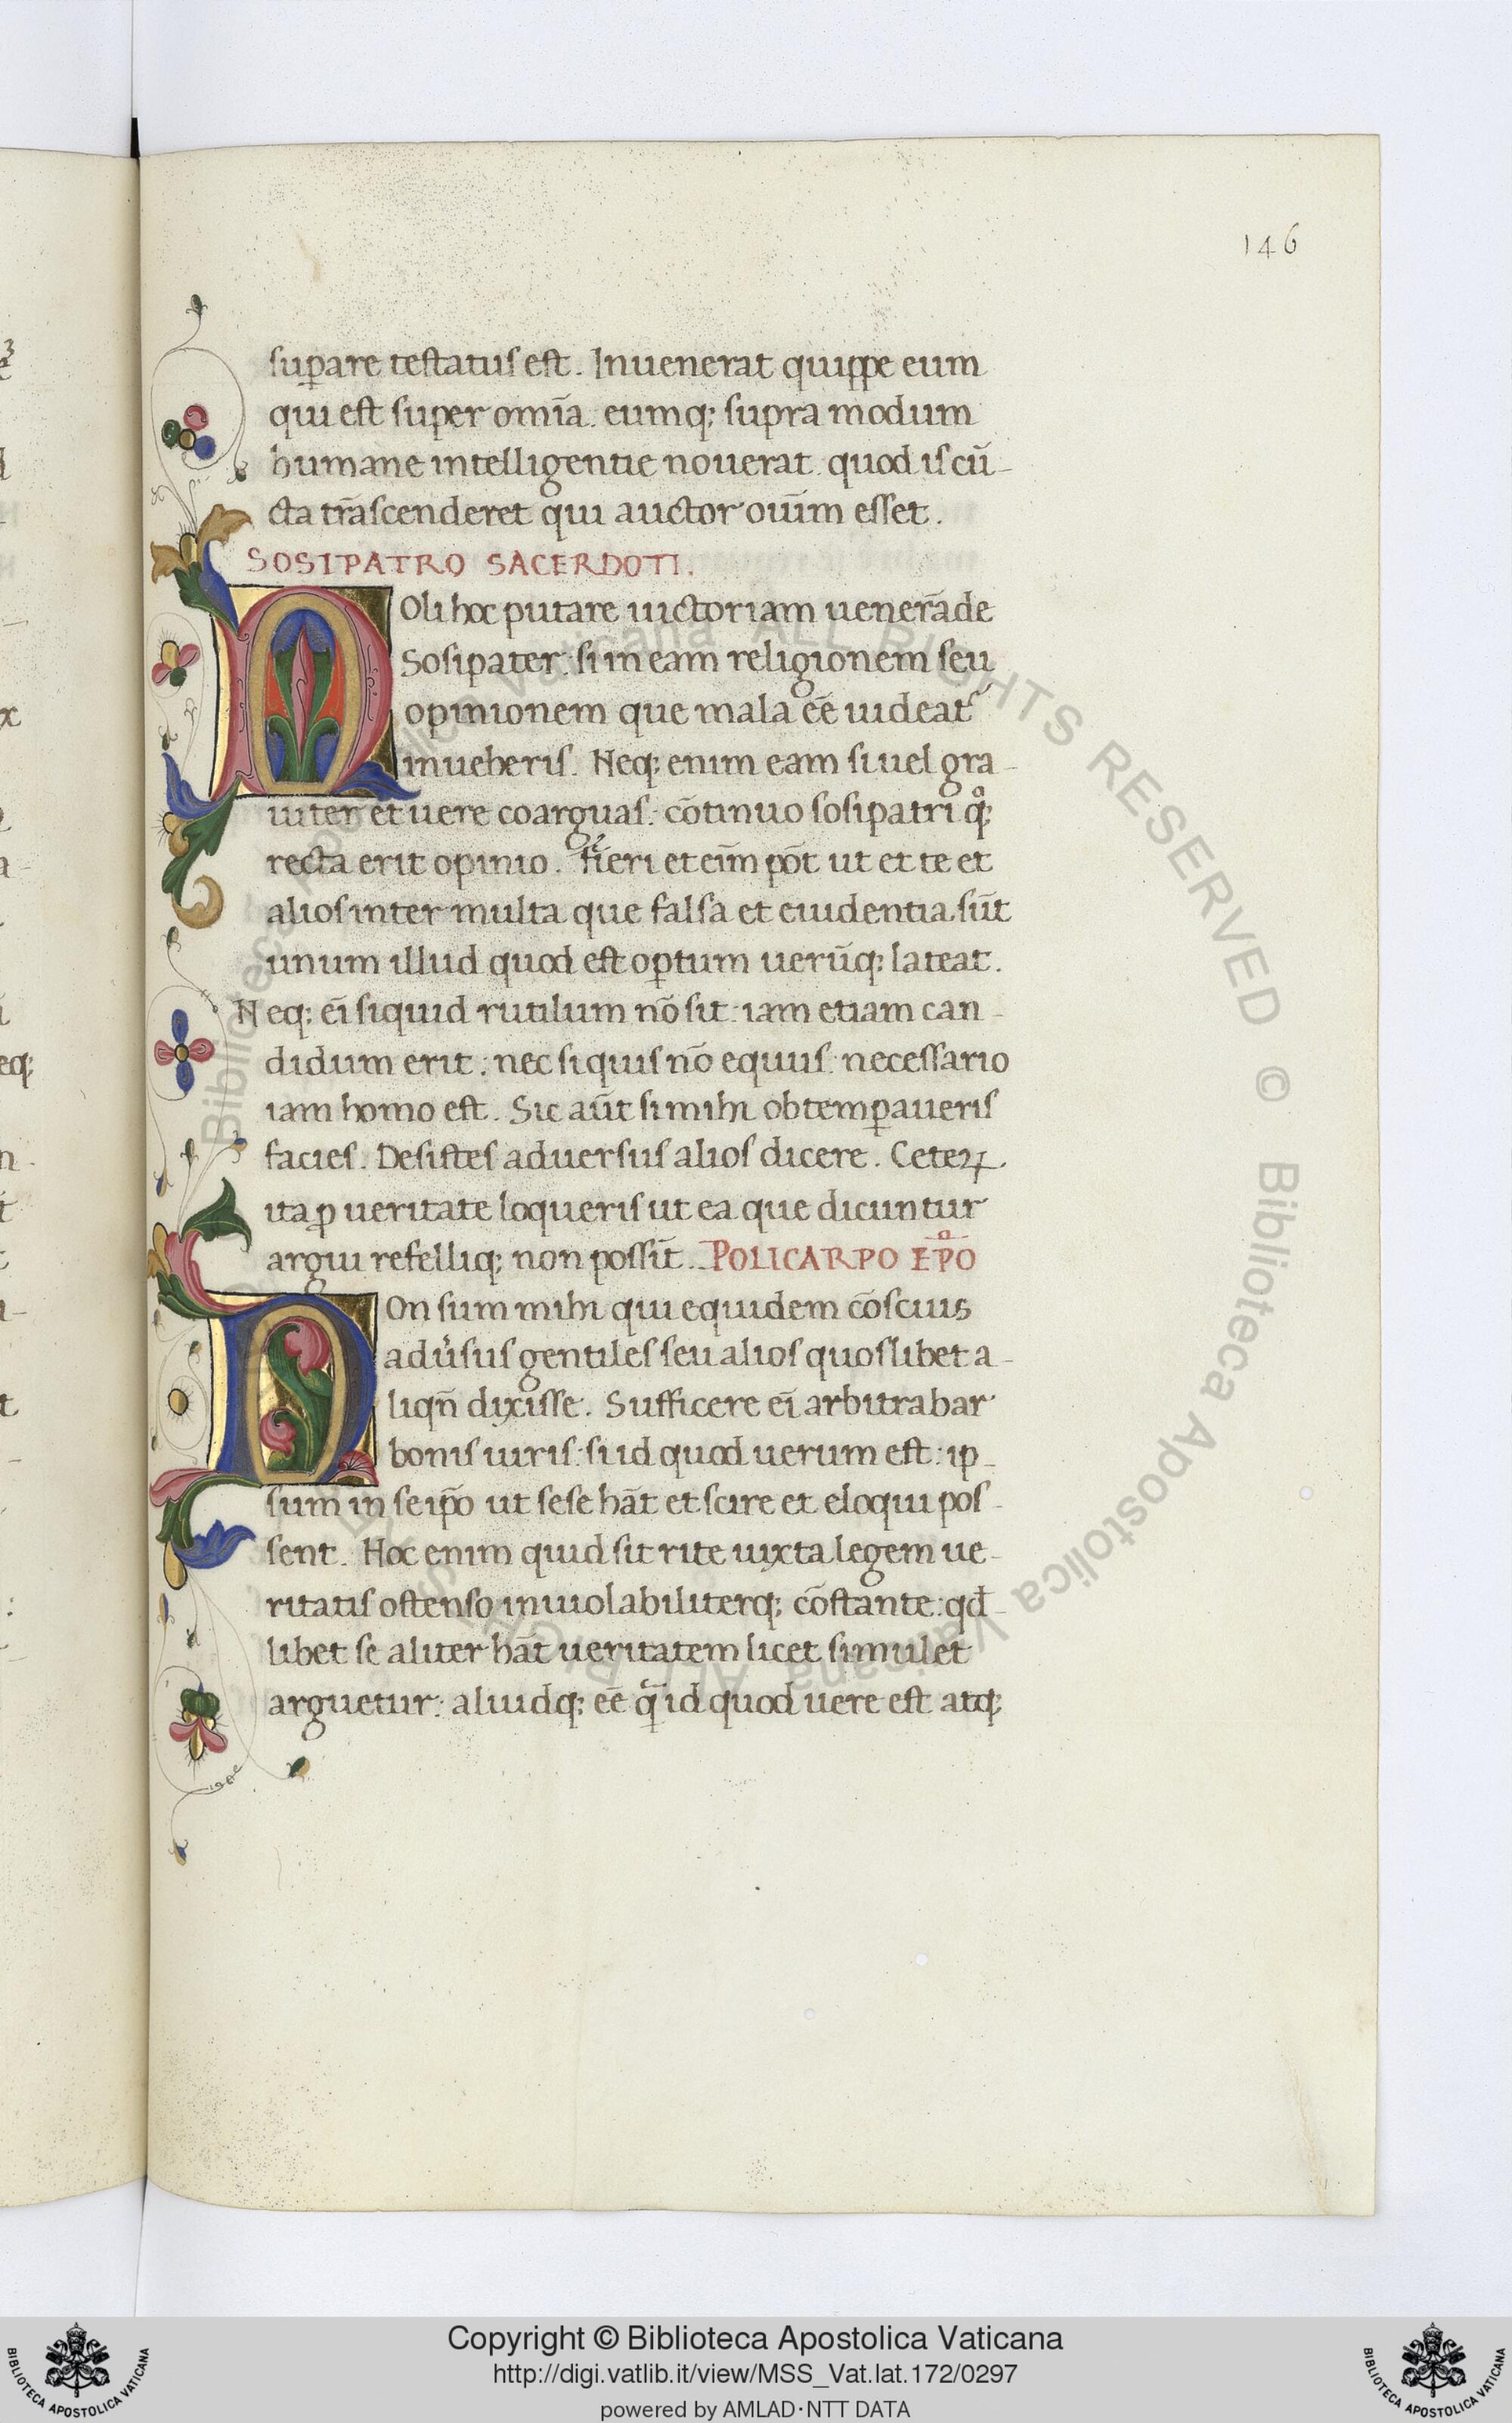 146
sup̱are testatus est. Inuenerat quippe eum
qui est super omĩa. eumq; supra modum
humane intelligentie nouerat. quod is cũ-
cta trãscenderet qui auctor ouĩm esset.
SOSIPATRO SACERDOTI.
NOli hoc putare uictoriam ueneñade
Sosipater: si in eam religionem seu
opinionem que mala eẽ uideat᷑
inueheris. Neq; enim eam si uel gra-
uiter et uere coarguas: cõtinuo sosipatri qͦ;
recta erit opinio. Fieri et eĩm põt ut et te et
alios inter multa que falsa et euidentia sũt
unum illud quod est op̱tum uerũq; lateat.
Neq; eĩ siquid rutilum nõ sit: iam etiam can-
didum erit: nec siquis nõ equus: necessario
iam homo est. Sic aũt si mihi obtemp̱aueris
facies. Desistes aduersus alios dicere. Ceteꝝ.
ita ꝓ ueritate loqueris ut ea que dicuntur
argui refelliq; non possũt. POLICARPO EP̃O
NOn sum mihi qui equidem cõscius
adũsus gentiles seu alios quoslibet a-
liqñ dixisse. Sufficere eĩ arbitrabar
bonis uiris: si id quod uerum est: ip-
sum in seip̃o ut sese hãt et scire et eloqui pos-
sent. Hoc enim quid sit rite iuxta legem ue-
ritatis ostenso inuiolabiliterq; cõstante: qđ-
libet se aliter hãt ueritatem licet simulet
arguetur: aliudq; eẽ q̃ id quod uere est atq;
Copyright © Biblioteca Apostolica Vaticana
http://digi.vatlib.it/view/MSS_Vat.lat.172/0297
powered by AMLAD·NTT DATA
BIBLIOTECA APOSTOLICA VATICANA
BIBLIOTECA APOSTOLICA VATICANA
Biblioteca Apostolica Vaticana ALL RIGHTS RESERVED © Biblioteca Apostolica Vaticana ALL RIGHTS